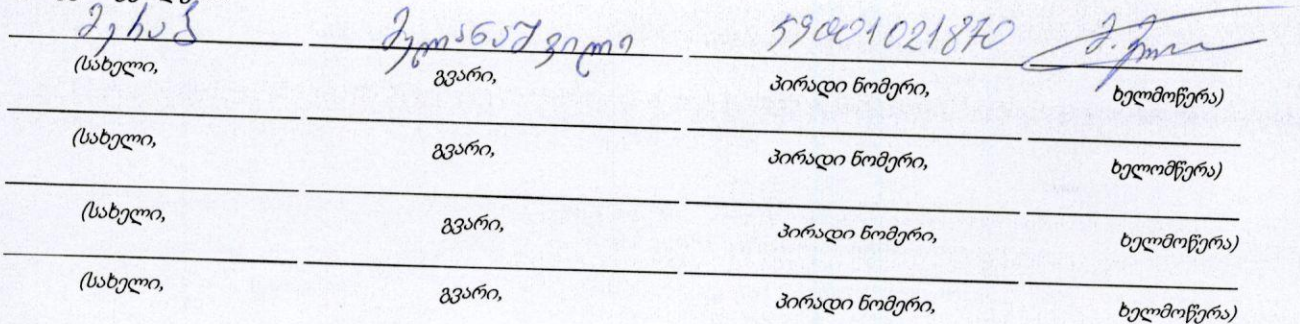 მერაბ მელანაშვილი 59001021870
(სახელი, გვარი, პირადი ნომერი, ხელმოწერა)
(სახელი, გვარი, პირადი ნომერი, ხელომწერა)
(სახელი, გვარი, პირადი ნომერი, ხელმოწერა)
(სახელი, გვარი, პირადი ნომერი, ხელმოწერა)